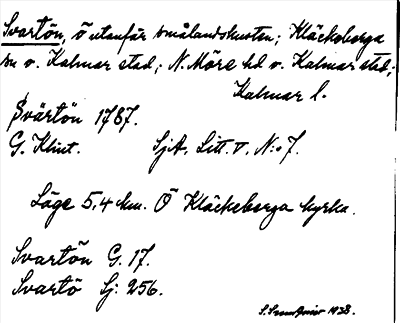 Svartön, ö utanför smålandskusten; Kläckeberga
sn o. Kalmar stad; N. Möre hd o. Kalmar stad;
Kalmar l.
Svartön 1787.
G. Klint. SjA, Litt. V, N:o 7.
Läge 5,4 km. Ö Kläckeberga kyrka.
Svartön G. 17.
Svartö Sj: 256.
1938.